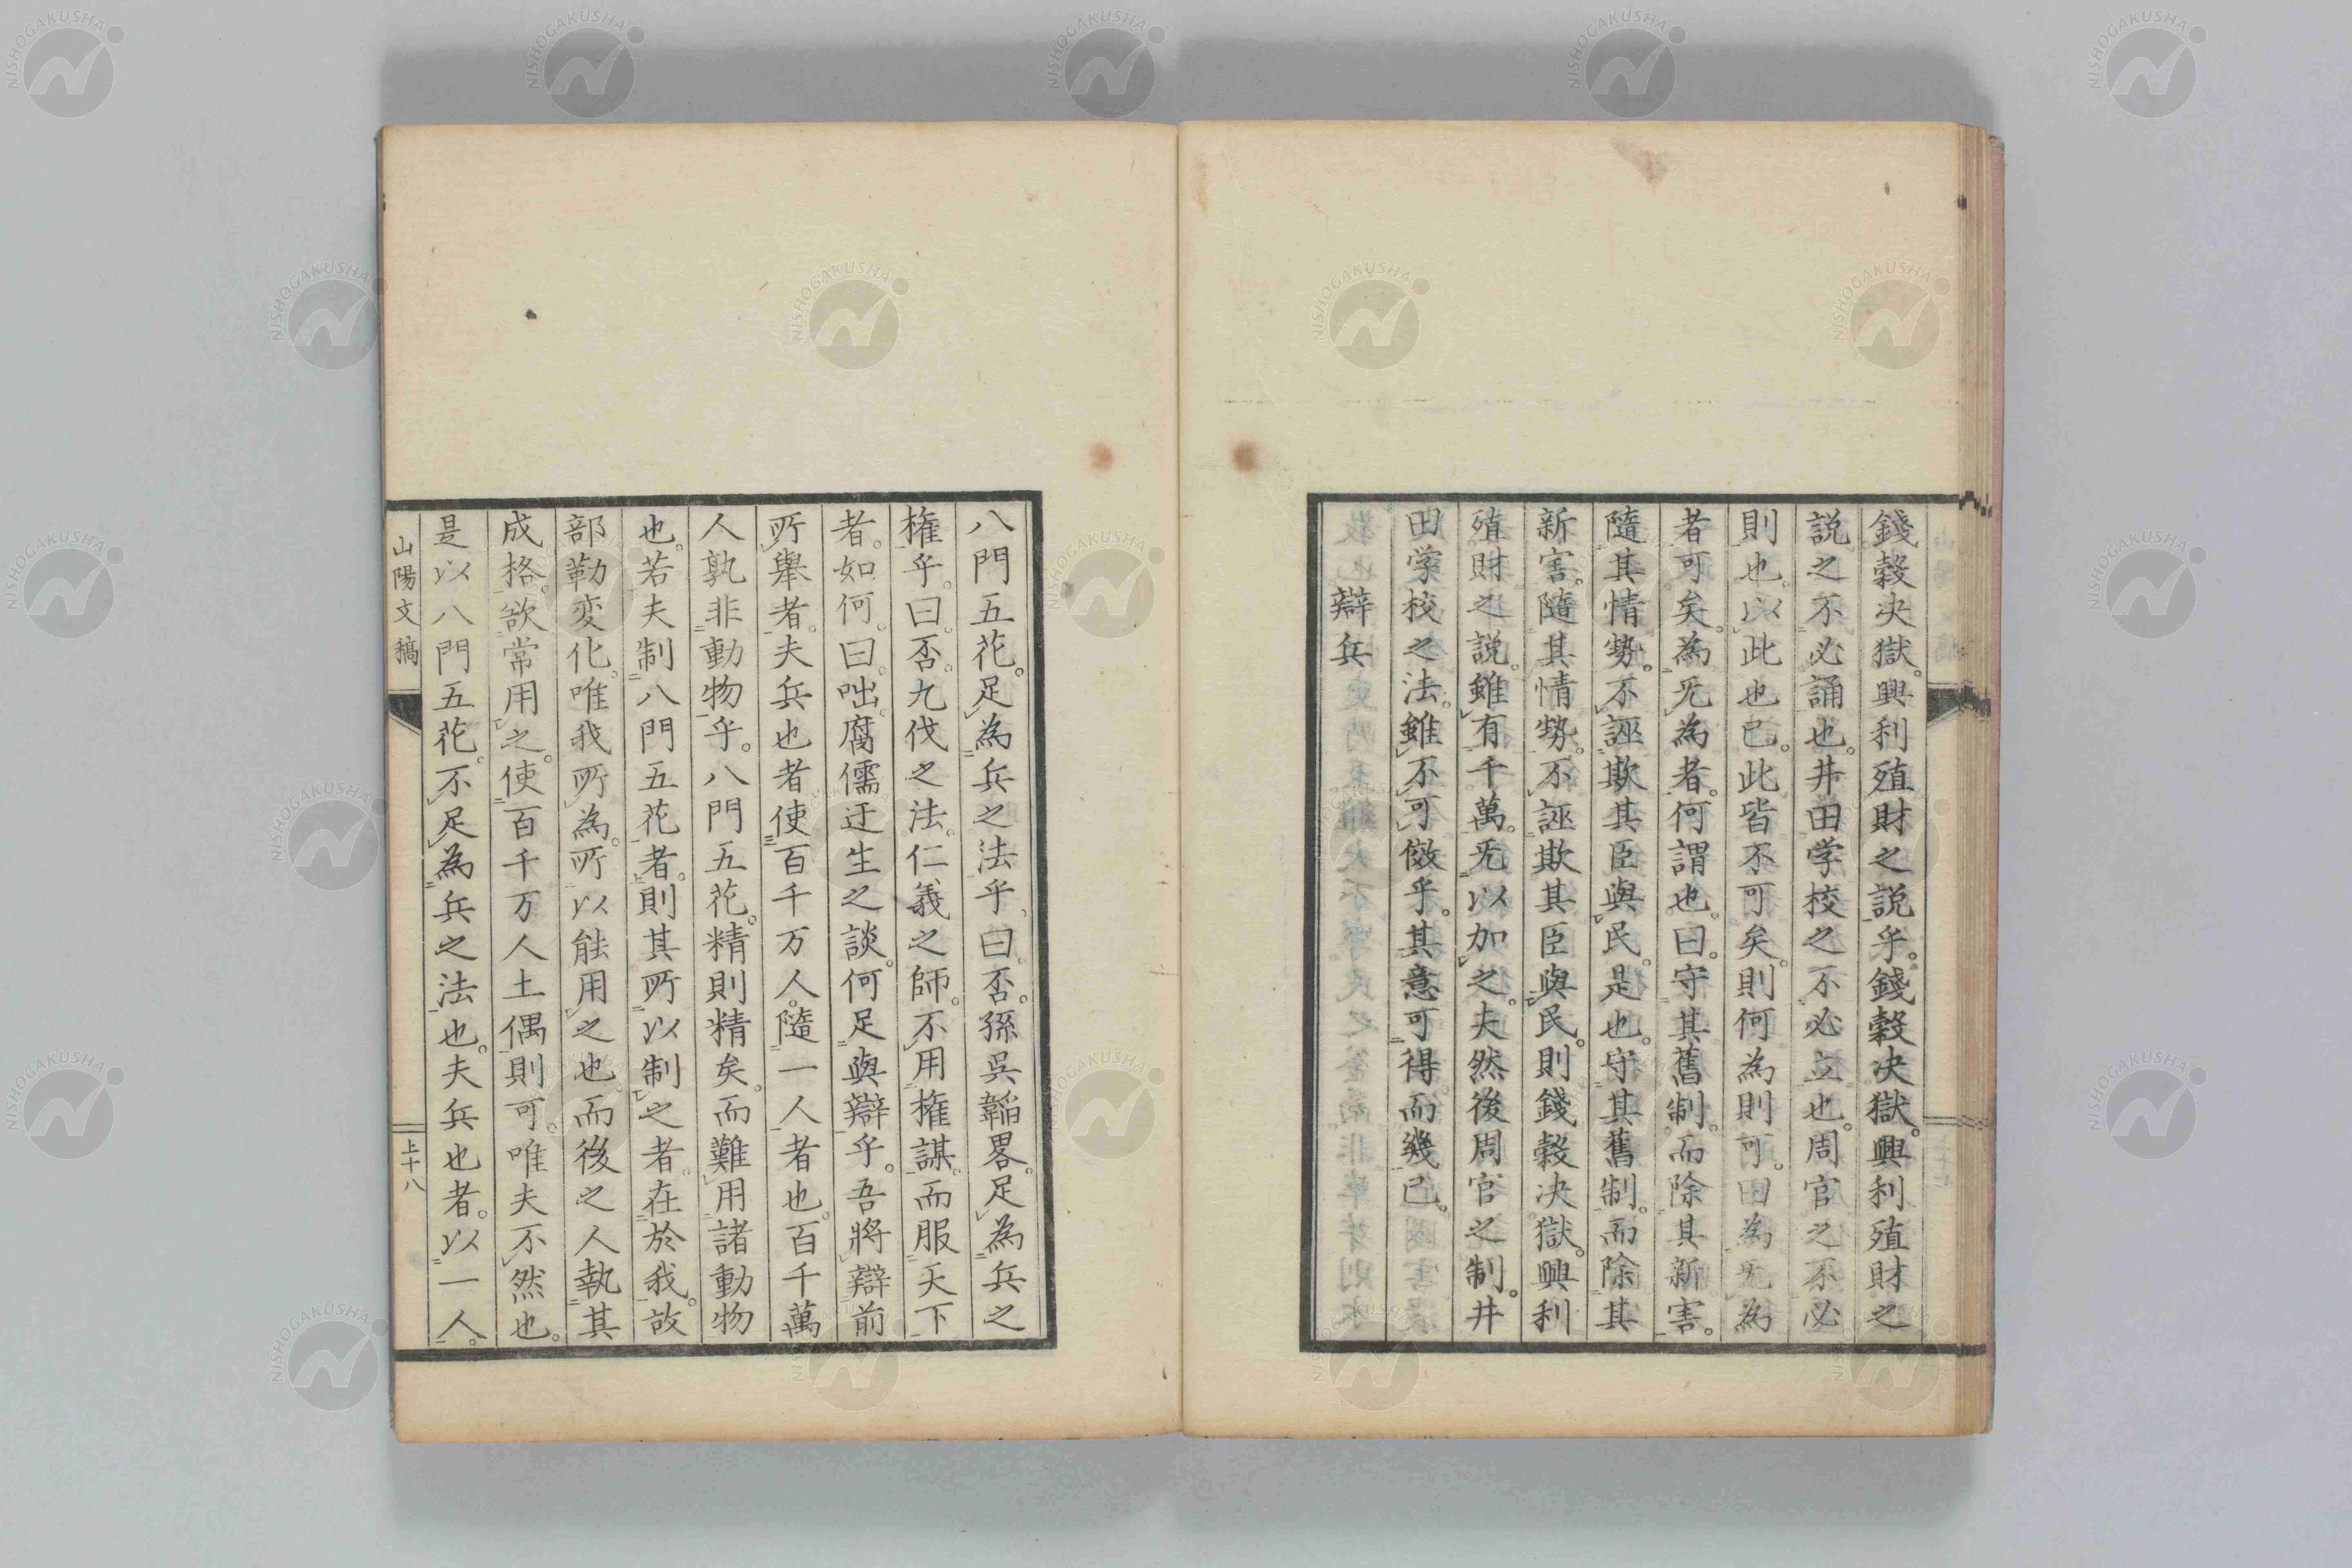 錢穀决獄。興利殖財之説乎。錢穀决獄。興利殖財之
説之不必誦也。井田学校之不必立也。周官之不必
則也。以此也已。此皆不可矣。則何為則可。曰為无為
者可矣。為无為者。何謂也。曰。守其舊制。而除其新害。
隨其情勢。不誣欺其臣與民。是也。守其舊制。而除其
新害。隨其情勢。不誣欺其臣與民。則錢穀决獄。興利
殖財之説。雖有千萬。无以加之。夫然後周官之制。井
田学校之法。雖不可倣乎。其意可得。而幾已。
辯兵
八門五花。足為兵之法乎。曰。否。孫呉韜畧。足為兵之
権乎。曰。否。九伐之法。仁義之師。不用権謀。而服天下
者。如何。曰。咄。腐儒迂生之談。何足與辯乎。吾將辯前
所舉者。夫兵也者使百千万人。隨一人者也。百千萬
人孰非動物乎。八門五花。精則精矣。而難用諸動物
也。若夫制八門五花者。則其所以制之者。在於我。故
部勒変化。唯我所為。所以能用之也。而後之人執其
成格。欲常用之。使百千万人土偶則可。唯夫不然也。
是以八門五花。不足為兵之法也。夫兵也者。以一人。
山陽文稿
上十八
NISHOGAKUSHA